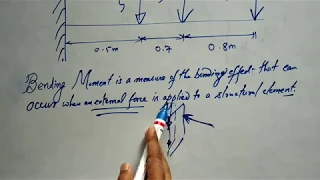 0.5m 0.7 0.8m
Bending Moment is a measure of the bending effect that can
occur when an external force is applied to a structural element.